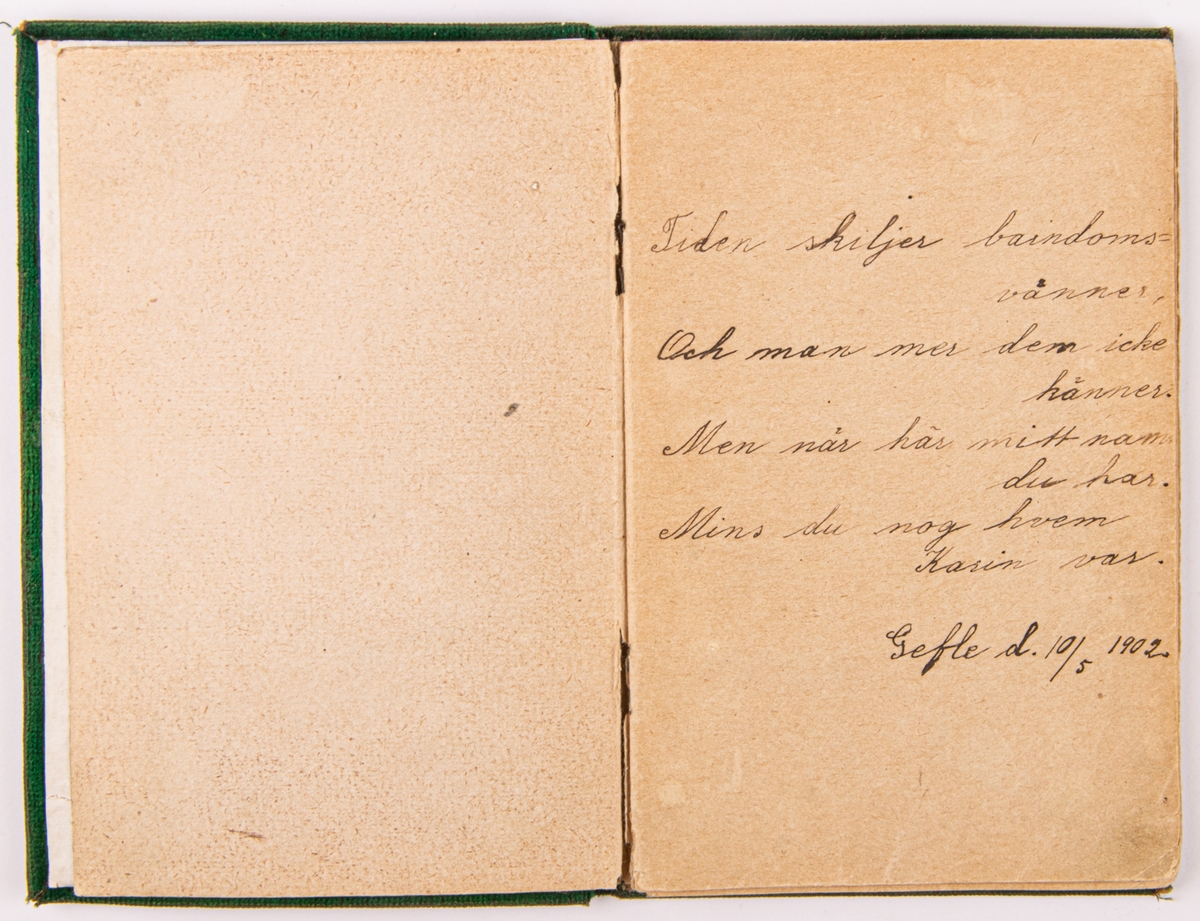 Tiden skiljer barndoms=
vänner,
Och man mer dem icke
känner.
Men när här mitt namn
du har.
Mins du nog hvem
Karin var.
Gefle d. 10/5 1902.